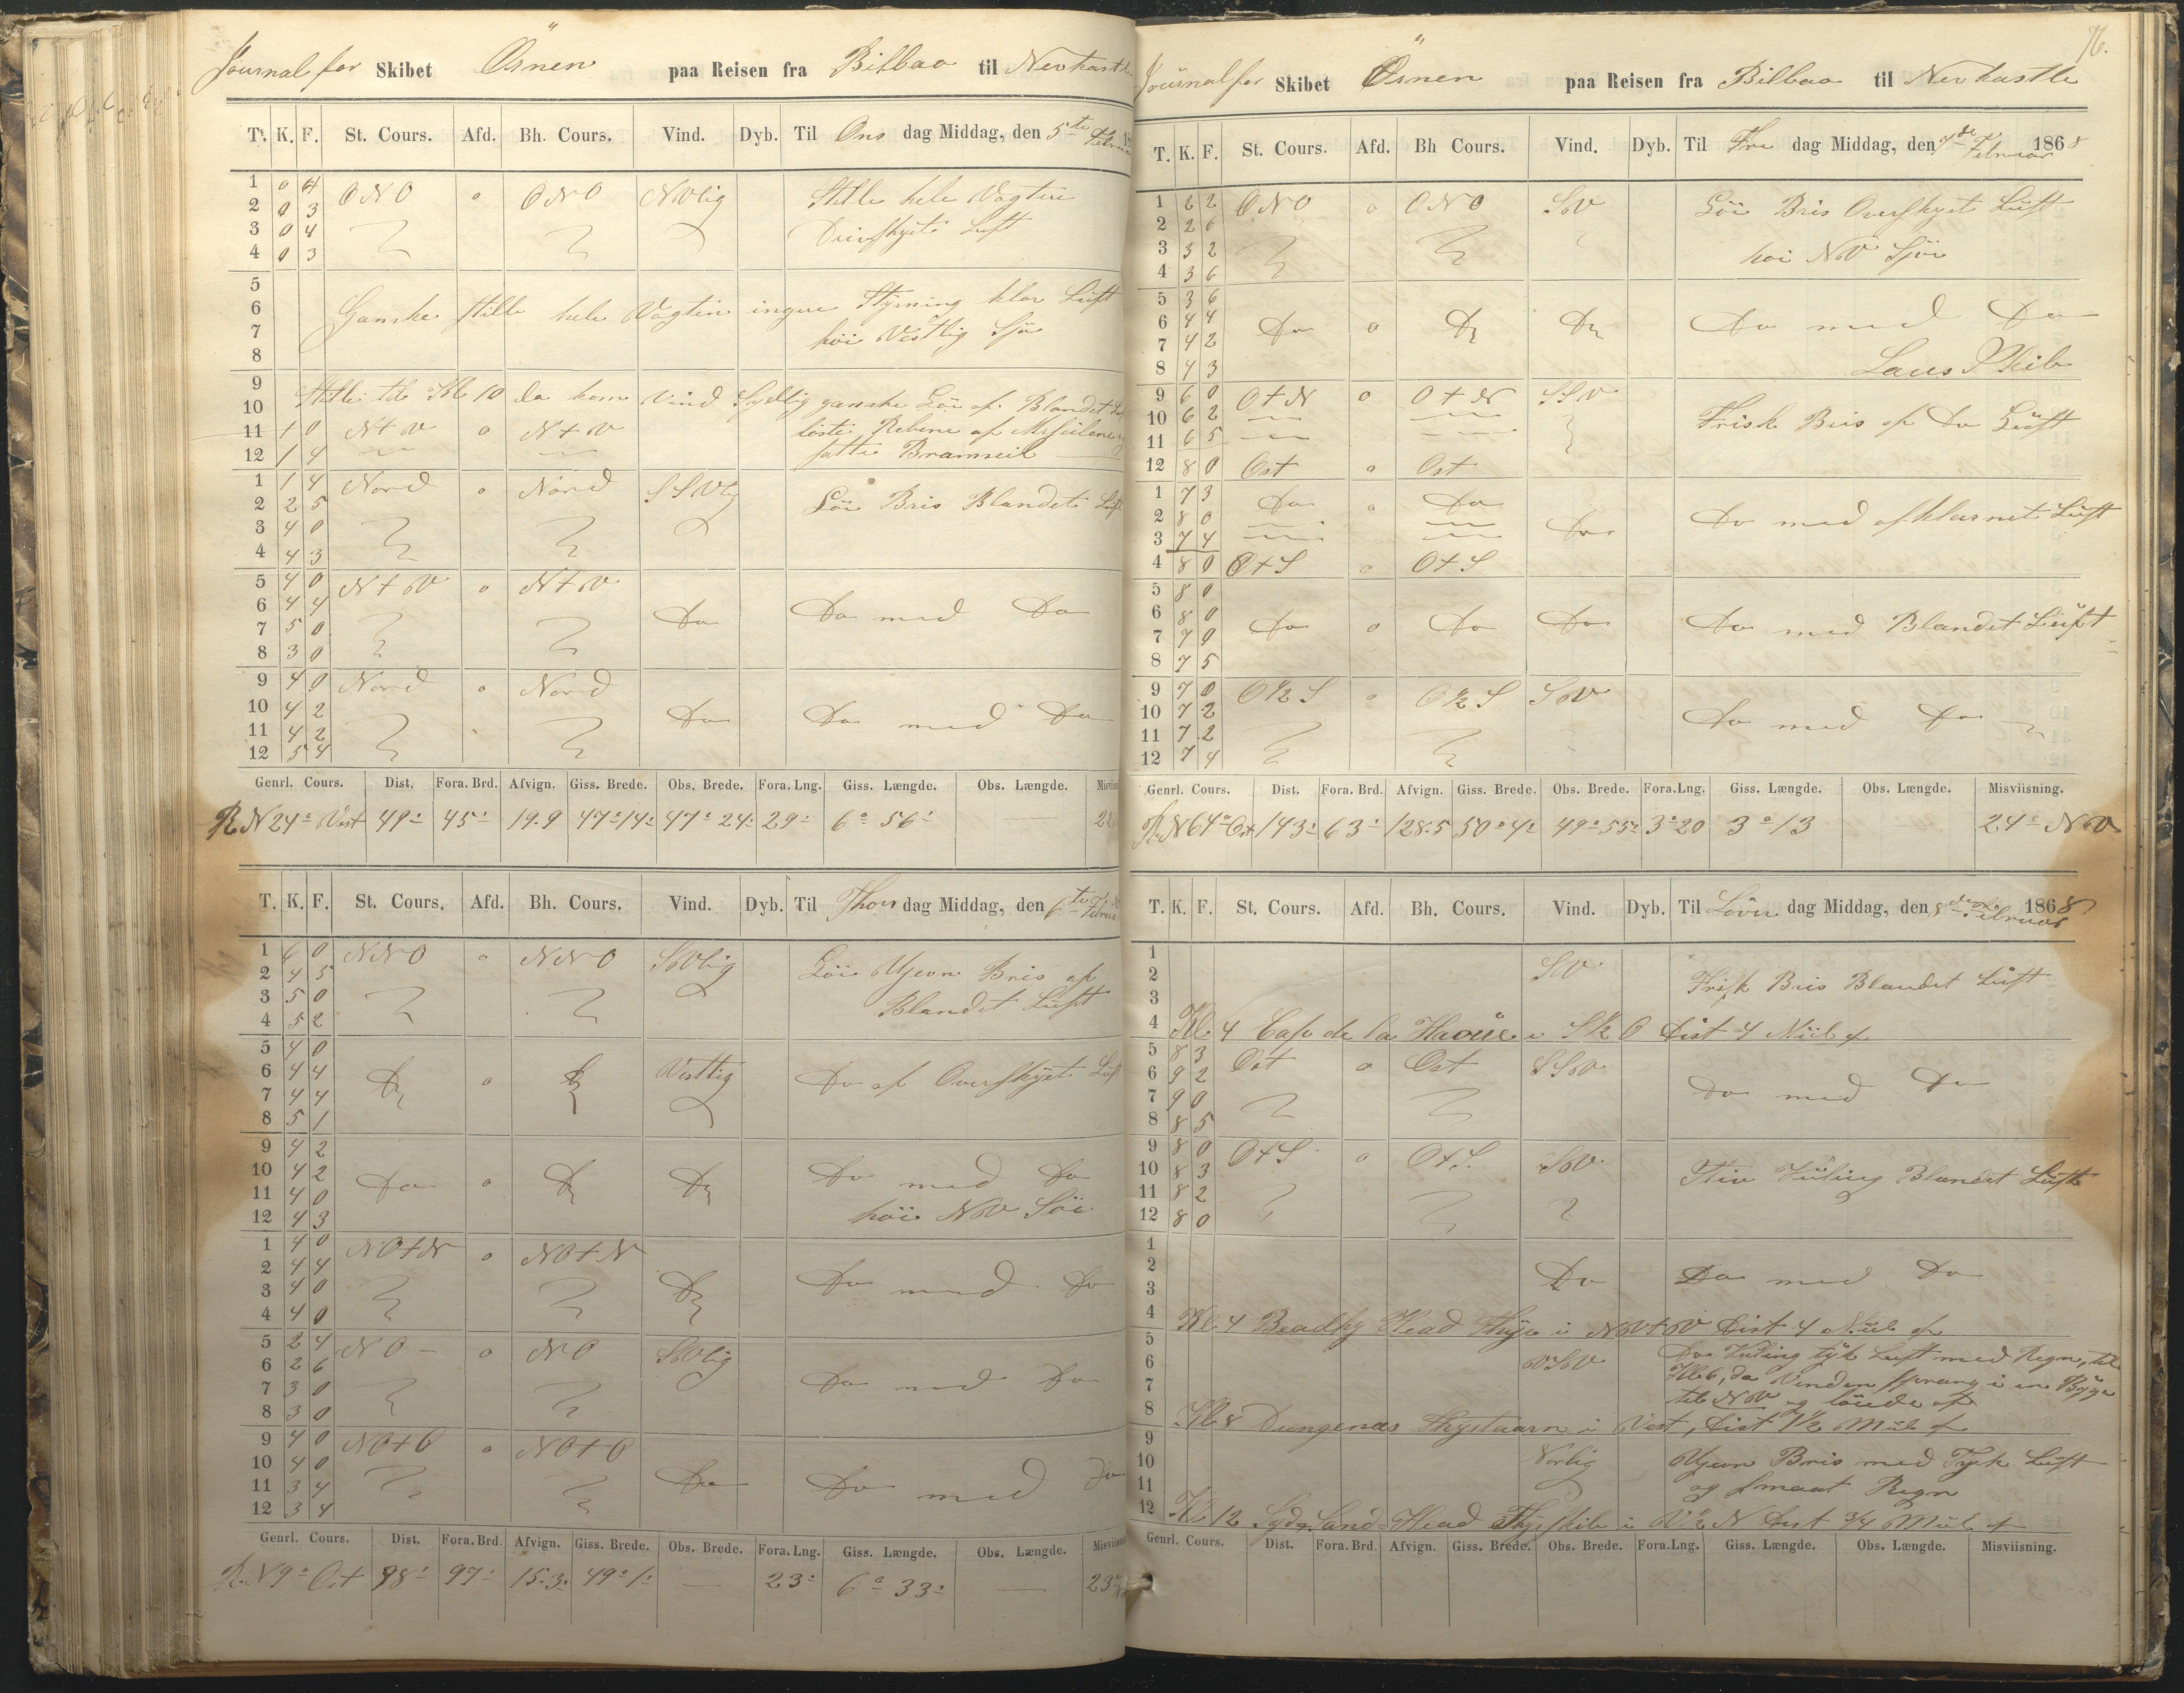 Journal for Skibet Örnen paa Reisen fra Bilbao til Nevkastle
T. K. F. St. Cours. Afd. Bh. Cours. Vind. Dyb. Til Ons dag Middag, den 5te Februar
1 0 4 ONO o ONO NVlig Stille hele Vagten
2 0 3 Drivskyet Luft
3 0 4
4 0 3
5
6 Ganske stille hele Vagten ingen Styrning klar Luft
7 höi Vestlig Sjö
8
9 Stille til Kl 10 da kom Vind Sydlig ganske Löi af Blandet
10
11 1 0 N+V o N+V löste Rebene af Mersseilene
12 1 4 satte Bramseil
1 1 4 Nord o Nord SSVlig Löi Bris Blandet Luft
2 2 5
3 4 0
4 4 3
5 4 0 N+V o N+V
6 4 4 Do Do med Do
7 5 0
8 3 0
9 4 0 Nord o Nord
10 4 2 Do Do med Do
11 4 2
12 5 4
Genrl. Cours. Dist. Fora. Brd. Afvign. Giss. Brede. Obs. Brede. Fora. Lng. Giss. Længde. Obs. Længde.
R. N 24° Vest 49' 45' 19.9 47° 14' 47° 24' 29' 6° 56'
T. K. F. St. Cours. Afd. Bh. Cours. Vind. Dyb. Til Thors dag Middag, den 6te Februar
1 6 0 NNO o NNO SVlig Löi Ujevn Bris af
2 4 5 Blandet Luft
3 5 0
4 5 2
5 4 0
6 4 4 Do o Do Vestlig Do af Overskyet Luft
7 4 4
8 5 1
9 4 2
10 4 2 Do o Do Do Do med Do
11 4 0 höi NV Söi
12 4 3
1 4 0 NO+N o NO+N
2 4 4 Do Do med Do
3 4 0
4 4 0
5 2 4 NO o NO SVlig
6 2 6 Do med Do
7 3 0
8 3 0
9 4 0 NO+O o NO+O
10 4 0 Do Do med Do
11 3 4
12 3 4
Genrl. Cours. Dist. Fora. Brd. Afvign. Giss. Brede. Obs. Brede. Fora. Lng. Giss. Længde. Obs. Længde.
R. N 9° Ost 98' 97' 15.3 49° 1' — 23' 6° 33' — 23°
76.
Journal for Skibet Örnen paa Reisen fra Bilbao til Nevkastle
T. K. F. St. Cours. Afd. Bh Cours. Vind. Dyb. Til Fre dag Middag, den 7de Februar 1868
1 2 2 ONO o ONO SV Löi Bris Overskyet Luft
2 2 6 höi NV Sjö
3 3 2
4 3 6
5 3 6
6 4 4 Do o Do Do Do med Do
7 4 2
8 4 3
9 6 0 O+N o O+N SSV
10 6 2 Frisk Bris af Do Luft
11 6 5
12 8 0 Ost o Ost
1 7 3 Do o Do
2 8 0 Do Do med afklarnet Luft
3 7 4
4 8 0 O+S o O+S
5 8 0
6 8 0 Do o Do Do Do med Blandet Luft
7 7 0
8 7 5
9 7 0 O½S o O½S SV
10 7 2 Do med Do
11 7 2
12 7 4
Genrl. Cours. Dist. Fora. Brd. Afvign. Giss. Brede. Obs. Brede. Fora. Lng. Giss. Længde. Obs. Længde. Misviisning.
R. N 64° Ost 143' 63' 128.5 50° 4' 49° 55' 3° 20 3° 13 — 24° NV
T. K. F. St. Cours. Afd. Bh. Cours. Vind. Dyb. Til Löver dag Middag, den 8de Februar 1868
1
2 SV Frisk Bris Blandet Luft
3
4 Kl 4 Cap de la Haoüe i S½O Dist 4 Miil af
5 8 3 Ost o Ost SSV
6 9 2 Do med Do
7 9 0
8 8 5
9 8 0 O+S o O+S SV
10 8 3 Stiv Kuling Blandet Luft
11 8 2
12 8 0
1
2 Do Do med Do
3
4 Kl 4 Beadhy Head Fhyr i NV+V Dist 4 Miil af
5 Do Kuling tyk Luft med Regn, til
6 VSV Kl 6, da Vinden sprang i en Byge
7 til NV og löiede af
8 Kl 8 Dungenes Fhyrtaarn i Vest, Dist 1½ Miil af
9
10 Norlig Ujevn Bris med Tyk Luft
11 og smaat Regn
12 Kl 12 Syd Sand Head Fhyrskib i V½N Dist ¾ Miil af
Genrl. Cours. Dist. Fora. Brd. Afvign. Giss. Brede. Obs. Brede. Fora. Lng. Giss. Længde. Obs. Længde. Misviisning.